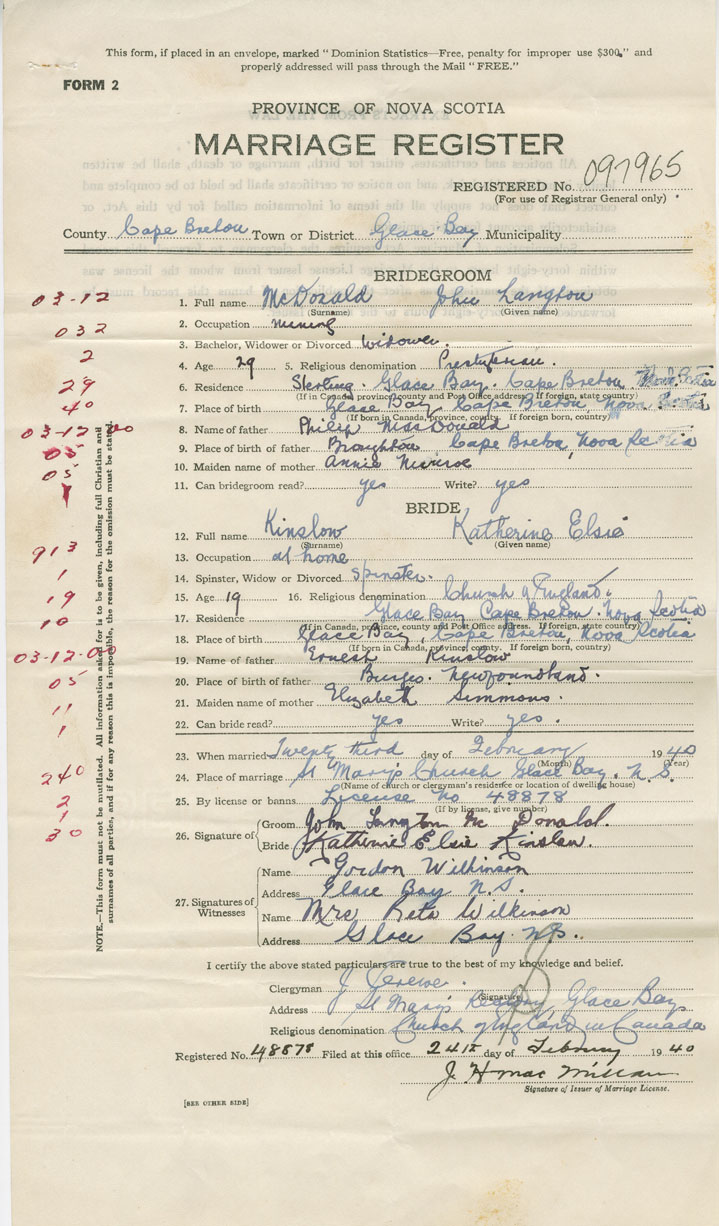 This form, if placed in an envelope, marked "Dominion Statistics—Free, penalty for improper use $300," and
properly addressed will pass through the Mail "FREE."
FORM 2
PROVINCE OF NOVA SCOTIA
MARRIAGE REGISTER
REGISTERED No. 097965
(For use of Registrar General only)
County Cape Breton Town or District Glace Bay Municipality
BRIDEGROOM
03-12
1. Full name McDonald John Langton
(Surname) (Given name)
2. Occupation mining
032
3. Bachelor, Widower or Divorced Widower.
2
4. Age 29 5. Religious denomination Presbyterian.
29
6. Residence Sterling. Glace Bay. Cape Breton. Nova Scotia
(If in Canada, province, county and Post Office address. If foreign, state county)
40
7. Place of birth Glace Bay Cape Breton Nova Scotia
(If born in Canada, province, county. If foreign born, country)
03-12-00
8. Name of father Philip MacDonald
05
9. Place of birth of father Broughton Cape Breton, Nova Scotia
05
10. Maiden name of mother Annie Munroe
1
11. Can bridegroom read? yes Write? yes
BRIDE
12. Full name Kinslow Katherine Elsie
(Surname) (Given name)
913
13. Occupation at home
1
14. Spinster, Widow or Divorced Spinster.
19
15. Age 19 16. Religious denomination Church of England.
10
17. Residence Glace Bay Cape Breton. Nova Scotia
(If in Canada, province, county and Post Office address. If foreign, state country)
18. Place of birth Glace Bay, Cape Breton, Nova Scotia
(If born in Canada, province, county. If foreign born, country)
03-12-00
19. Name of father Ernest Kinslow
05
20. Place of birth of father Burgeo. Newfoundland.
11
21. Maiden name of mother Elizabeth Simmons.
1
22. Can bride read? yes Write? yes.
23. When married Twenty third day of February 1940
(Month) (Year)
240
24. Place of marriage St Mary's Church Glace Bay. N.S.
(Name of church or clergyman's residence or location of dwelling house)
2
25. By license or banns License No 48878
(If by license, give number)
1
30
26. Signature of
Groom John Langton Mc Donald.
Bride Katherine Elsie Kinslow
27. Signatures of Witnesses
Name Gordon Wilkinson
Address Glace Bay N.S.
Name Mrs Reta Wilkinson
Address Glace Bay. N.S.
I certify the above stated particulars are true to the best of my knowledge and belief.
Clergyman J
(Signature)
Address St Mary's Rectory, Glace Bay
Religious denomination Church of England in Canada
Registered No. 48878 Filed at this office 24th day of February 1940
J. H Mac Millan
Signature of Issuer of Marriage License.
[SEE OTHER SIDE]
NOTE.—This form must not be mutilated. All information asked for is to be given, including full Christian and
surnames of all parties, and if for any reason this is impossible, the reason for the omission must be stated.